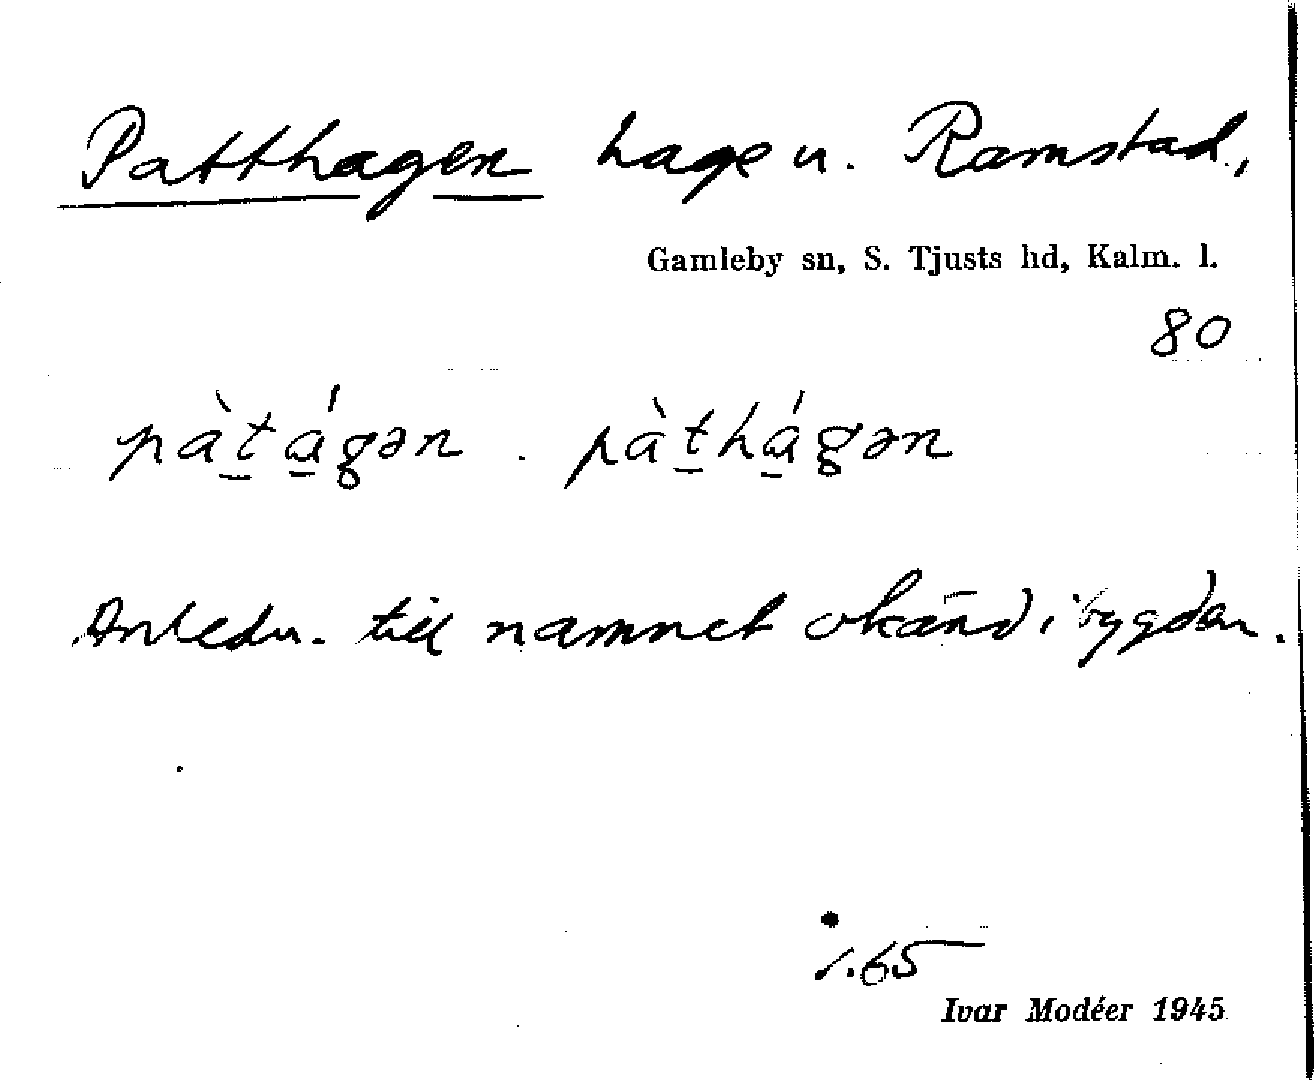 Patthagen hage u. Ramstad,
Gamleby sn, S. Tjusts hd, Kalm. l.
80
pàt̠á̠gən . pàt̠há̠gən
Anledn. till namnet okänd i bygden.
1.65
Ivar Modéer 1945